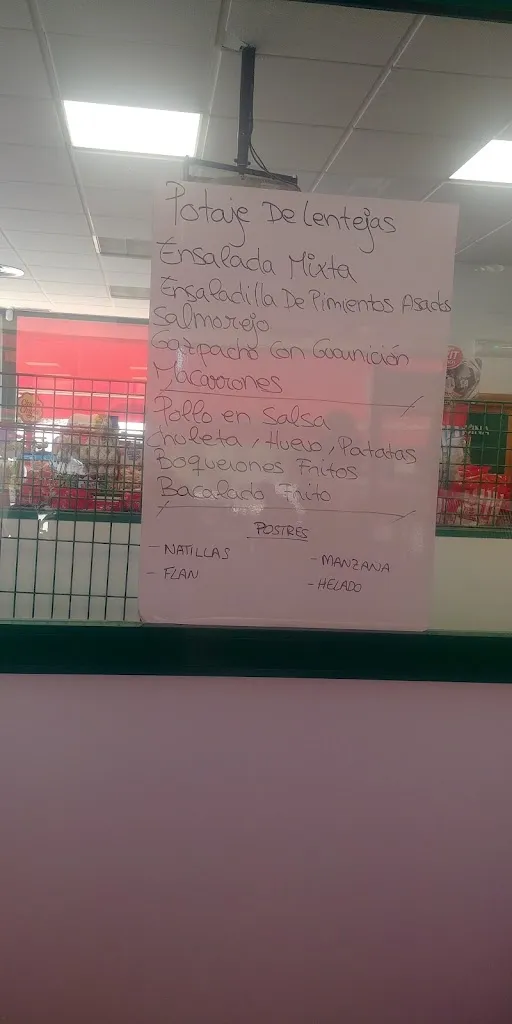 Potaje De Lentejas
Ensalada Mixta
Ensaladilla De Pimientos Asados
Salmorejo
Gazpacho Con Guarnición
Macarrones
Pollo en Salsa
Chuleta, Huevo, Patatas
Boquerones Fritos
Bacalado Frito
POSTRES
- NATILLAS
- MANZANA
- FLAN
- HELADO